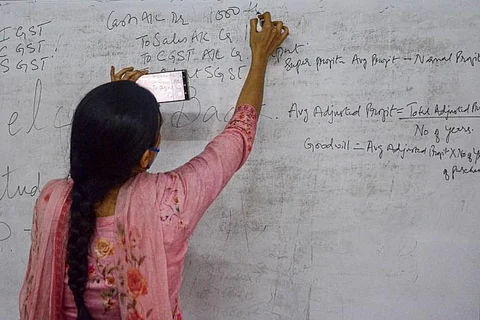 IGST
CGST
SGST
Cash A/c Dr 1000
To Sales A/c Cr
To CGST A/c Cr
SGST
Super Profit = Avg Profit - Normal Profit
Avg Adjusted Profit = Total Adjusted
No of years.
Goodwill = Avg Adjusted Profit X No of
of purchase